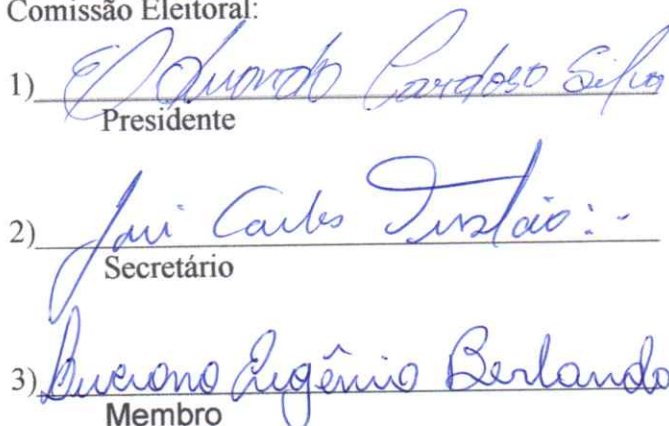 Comissão Eleitoral:
1) Eduardo Cardoso Silva
Presidente
2) Carlos
Secretário
3) Luciano Eugênio Berlando
Membro